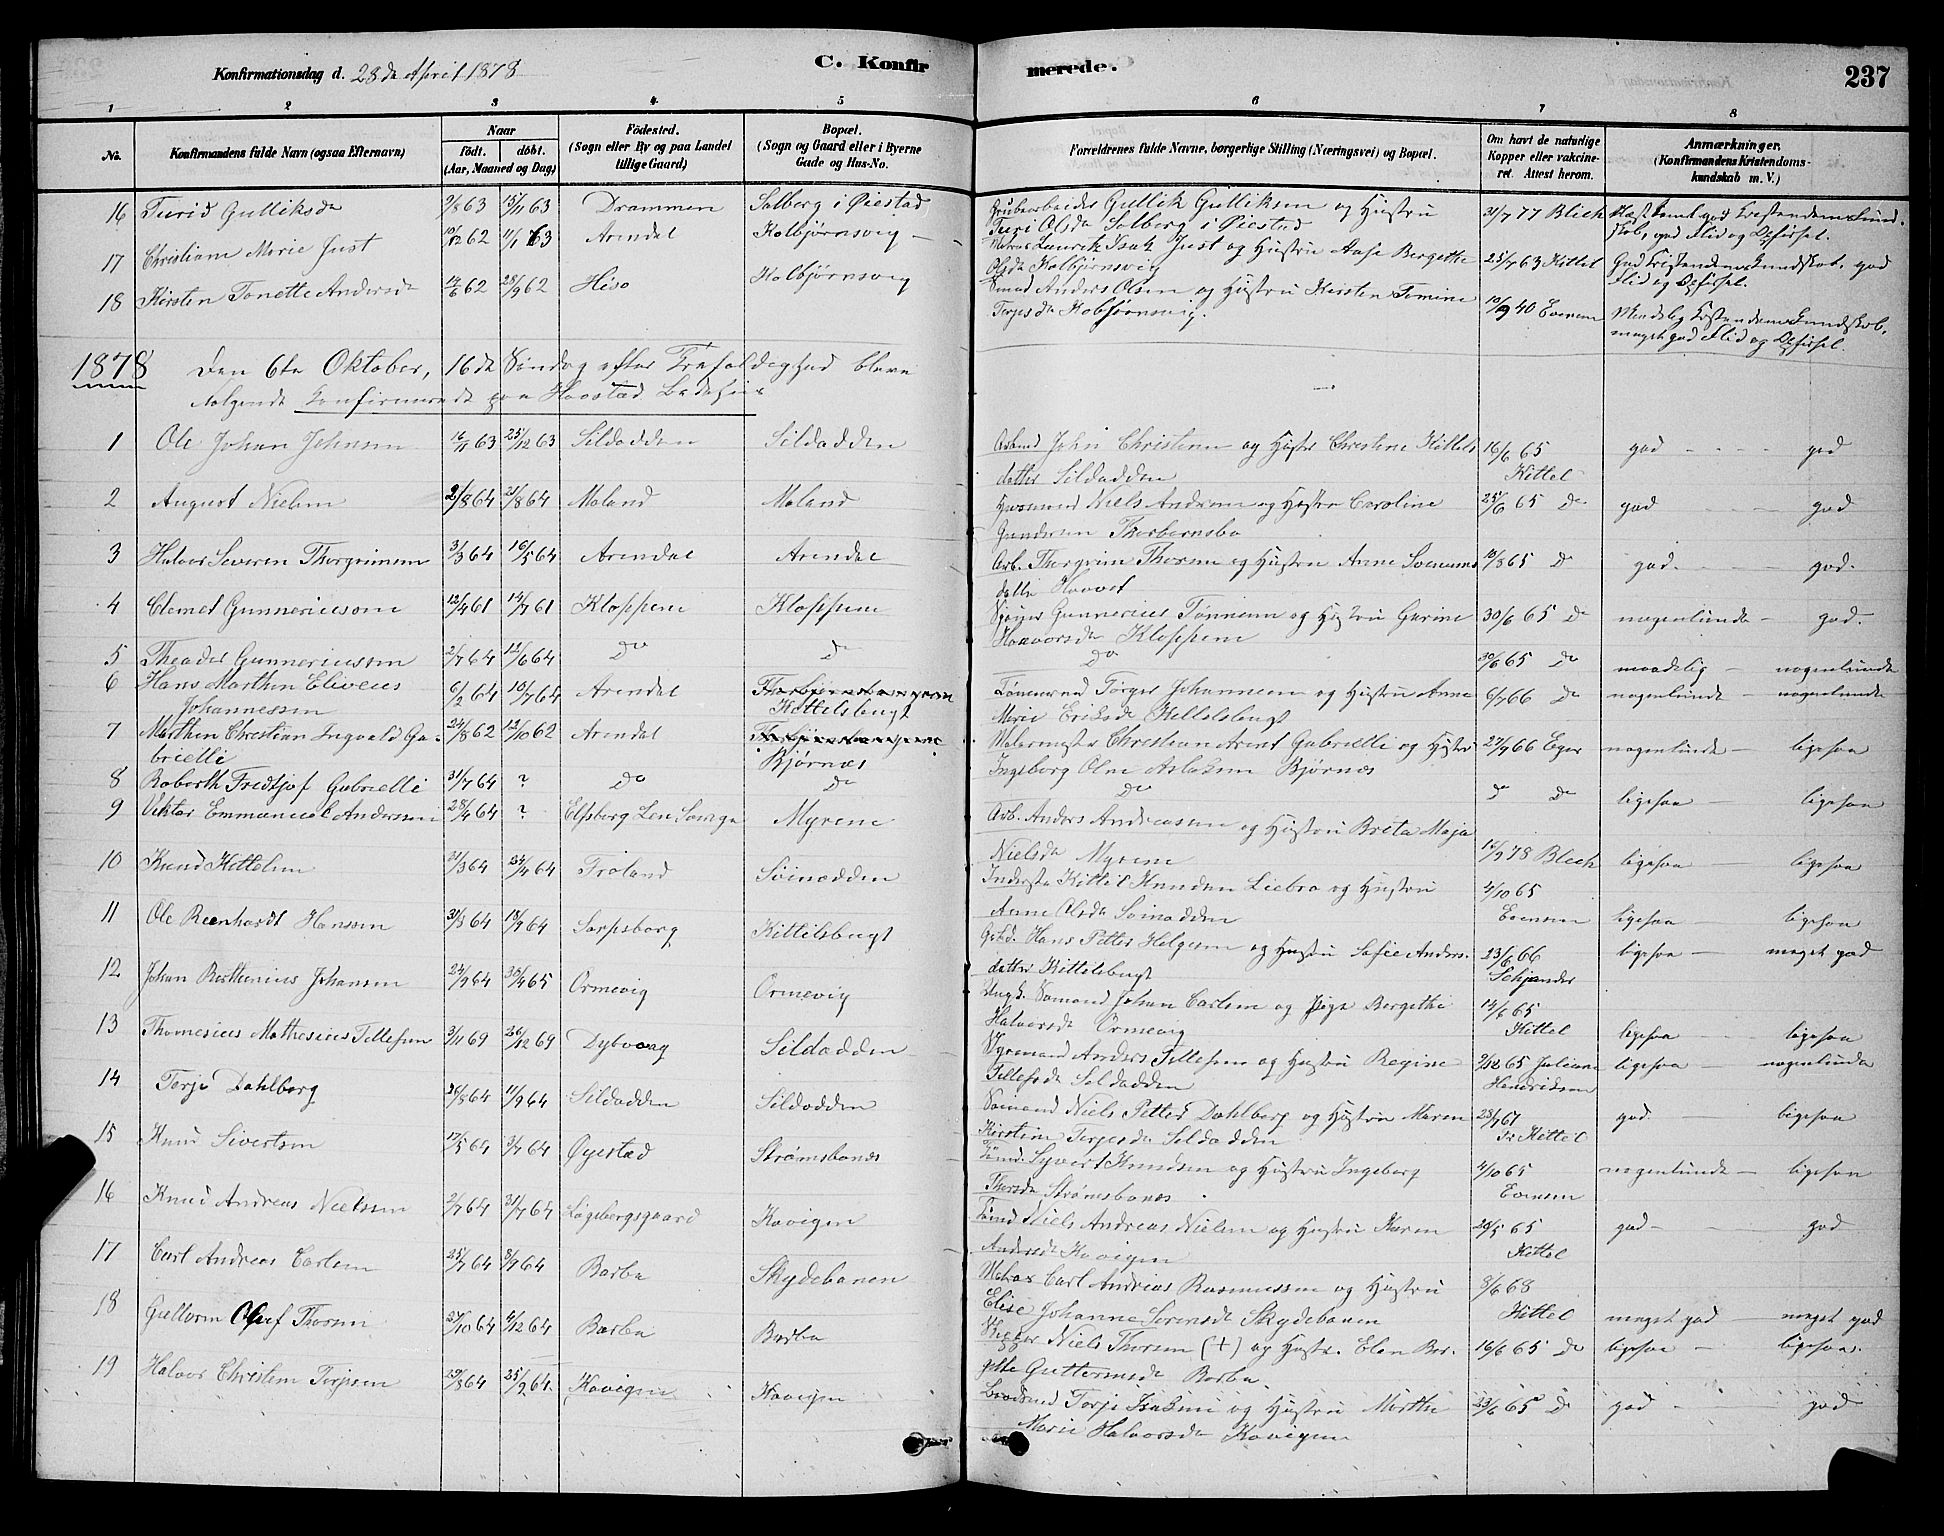 Konfirmationsdag d. 28de April 1878
C. Konfirmerede.
237
1 2 3 4 5 6 7 8
No.
Konfirmandens fulde Navn (ogsaa Efternavn)
Naar
født. døbt.
(Aar, Maaned og Dag)
Fødested.
(Sogn eller By og paa Landet
tillige Gaard)
Bopæl.
(Sogn og Gaard eller i Byerne
Gade og Hus-No.
Forældrenes fulde Navne, borgerlige Stilling (Næringsvei) og Bopæl.
Om havt de naturlige
Kopper eller vakcine-
ret. Attest herom.
Anmærkninger.
(Konfirmandens Kristendoms-
kundskab m. V.)
16 Turid Gulliksda 9/8 63 15/11 63 Drammen Solberg i Øiestad Grubearbeider Gullik Gulliksen og Hustru
Turi Olsda Solberg i Øiestad 31/7 77 Blich
17 Christiane Marie Just 10/12 62 11/1 63 Arendal Kolbjørnsvig Matros Laurits Isak Just og Hustru Aase Bergethe
Olsda Kolbjørnsvig 25/7 63 Kittel God Kristendomskundskab, god
Flid og Opførsel.
18 Kirsten Tonette Andersda 14/6 62 28/9 62 Hisø Kolbjørnsvig Smed Anders Olsen og Hustru Kirsten Tomine
Terjesda Kolbjørnsvig. 10/9 40 Evensen Mindelig Kristendomskundskab,
meget god Flid og Opførsel.
1878 Den 6te Oktober, 16de Søndag efter Trefoldighed bleve
følgende Konfirmerede paa Haastad
1 Ole Johan Johnsen 16/11 63 25/12 63 Sildodden Sildodden Arbmd John Christensen og Hustru Christine Kittels
datter Sildodden 16/6 65 Kittel god god
2 August Nielsen 2/8 64 21/8 64 Moland Moland Husmand Niels Andersen og Hustru Caroline
Gundersen Thorbjørnsbo 25/6 65 Do god god
3 Halvor Severen Thorgrimsen 3/3 64 16/5 64 Arendal Arendal Arb. Thorgrim Thorsen og Hustru Anne Svenums
datte Haavet 10/8 65 Do god. god.
4 Clemet Gunneriusson 12/4 61 14/7 61 Kloppene Kloppene Gunnerius Tønnesen og Hustru Gurine
Haavorsda Kloppene 30/6 65 Do nogenlunde god.
5 Theodor Gunneriussen 2/4 64 12/6 64 Do Do Do 30/6 65 Do maadelig nogenlunde
6 Hans Marthin Eliveus
Johannessen 6/2 64 10/7 64 Arendal Kittelsbugt Tømmermd Tørger Johannesen og Hustru Anne
Marie Eriksda Kittelsbugt 6/7 66 Do nogenlunde nogenlunde
7 Marthin Christian Ingvald Ga-
brielli 24/8 62 12/10 62 Arendal Bjørnæs Malermester Christian Arent Gabrielli og Hustru
Ingeborg Oline Aslaksen Bjørnæs 27/9 66 Eger nogenlunde ligesaa
8 Roborth Fredtjof Gabrielli 31/7 64 ? Do Do Do Do Do ligesaa ligesaa
9 Viktor Emmanuel Anderssen 28/4 64 ? Elfsborg Len Sverge Myrene Arb. Anders Andreassen og Hustru Breta Maja
Nielsda Myrene 12/9 78 Blech ligesaa ligesaa
10 Knud Kittelsen 31/3 64 24/4 64 Froland Soinødden Inderste Kittil Knudsen Liebro og Hustru
Anne Olsda Soinodden 4/10 65 Evensen ligesaa ligesaa
11 Ole Reenhardt Hanssen 31/3 64 18/9 64 Sarpsborg Kittilsbugt Hans Petter Helgesen og Hustru Sofie Anders.
datter Kittilsbugt 23/6 66 Schjander ligesaa meget god
12 Johan Berthenius Johansen 24/9 64 30/4 65 Ormevig Ormevig Ungk. Sømand Johan Carlsen og Pige Bergethe
Halvorsda Ormevig 14/6 65 Kittel ligesaa ligesaa
13 Thomesius Mathesius Tellefsen 3/11 69 26/12 69 Dybvaag Sildodden Styrmand Anders Tellefsen og Hustru Regine
Tellefsda Sildodden 2/12 65 Juliane
Hendriksen ligesaa nogenlunde
14 Terje Dahlberg 24/8 64 11/9 64 Sildodden Sildodden Sømand Niels Petter Dahlberg og Hustru Maren
Kirstine Terjesda Sildodden 28/7 67 Kittel god ligesaa
15 Knud Sivertsen 17/5 64 3/7 64 Øyestad Strømsbonæs Tømd Syvert Knudsen og Hustru Ingeborg
Thorsda Strømsbonæs 4/10 65 Evensen nogenlunde ligesaa
16 Knud Andreas Nielssen 2/7 64 31/7 64 Løgebergsgaard Kovigen Tømd Niels Andreas Nielsen og Hustru Karen
Andersda Kovigen 24/5 65 Kittel god god
17 Carl Andreas Carlsen 25/7 64 8/9 64 Barbo Skydebanen Matros Carl Andreas Rasmussen og Hustru
Elise Johanne Sørensda Skydebanen 8/6 68 Kittel meget god meget god
18 Guttorm Oluf Thorsen 27/10 64 4/12 64 Barbo Barbo Skipper Niels Thorsen (+) og Hustr. Elen Ber-
gitte Guttormsda Barbo. 16/6 65 Do ligesaa ligesaa.
19 Halvor Christen Terjesen 29/8 64 25/9 64. Kovigen Kovigen Terje Isaksen og Hustru Marthe
Marie Halvorsda Kovigen 23/6 65 Do god god